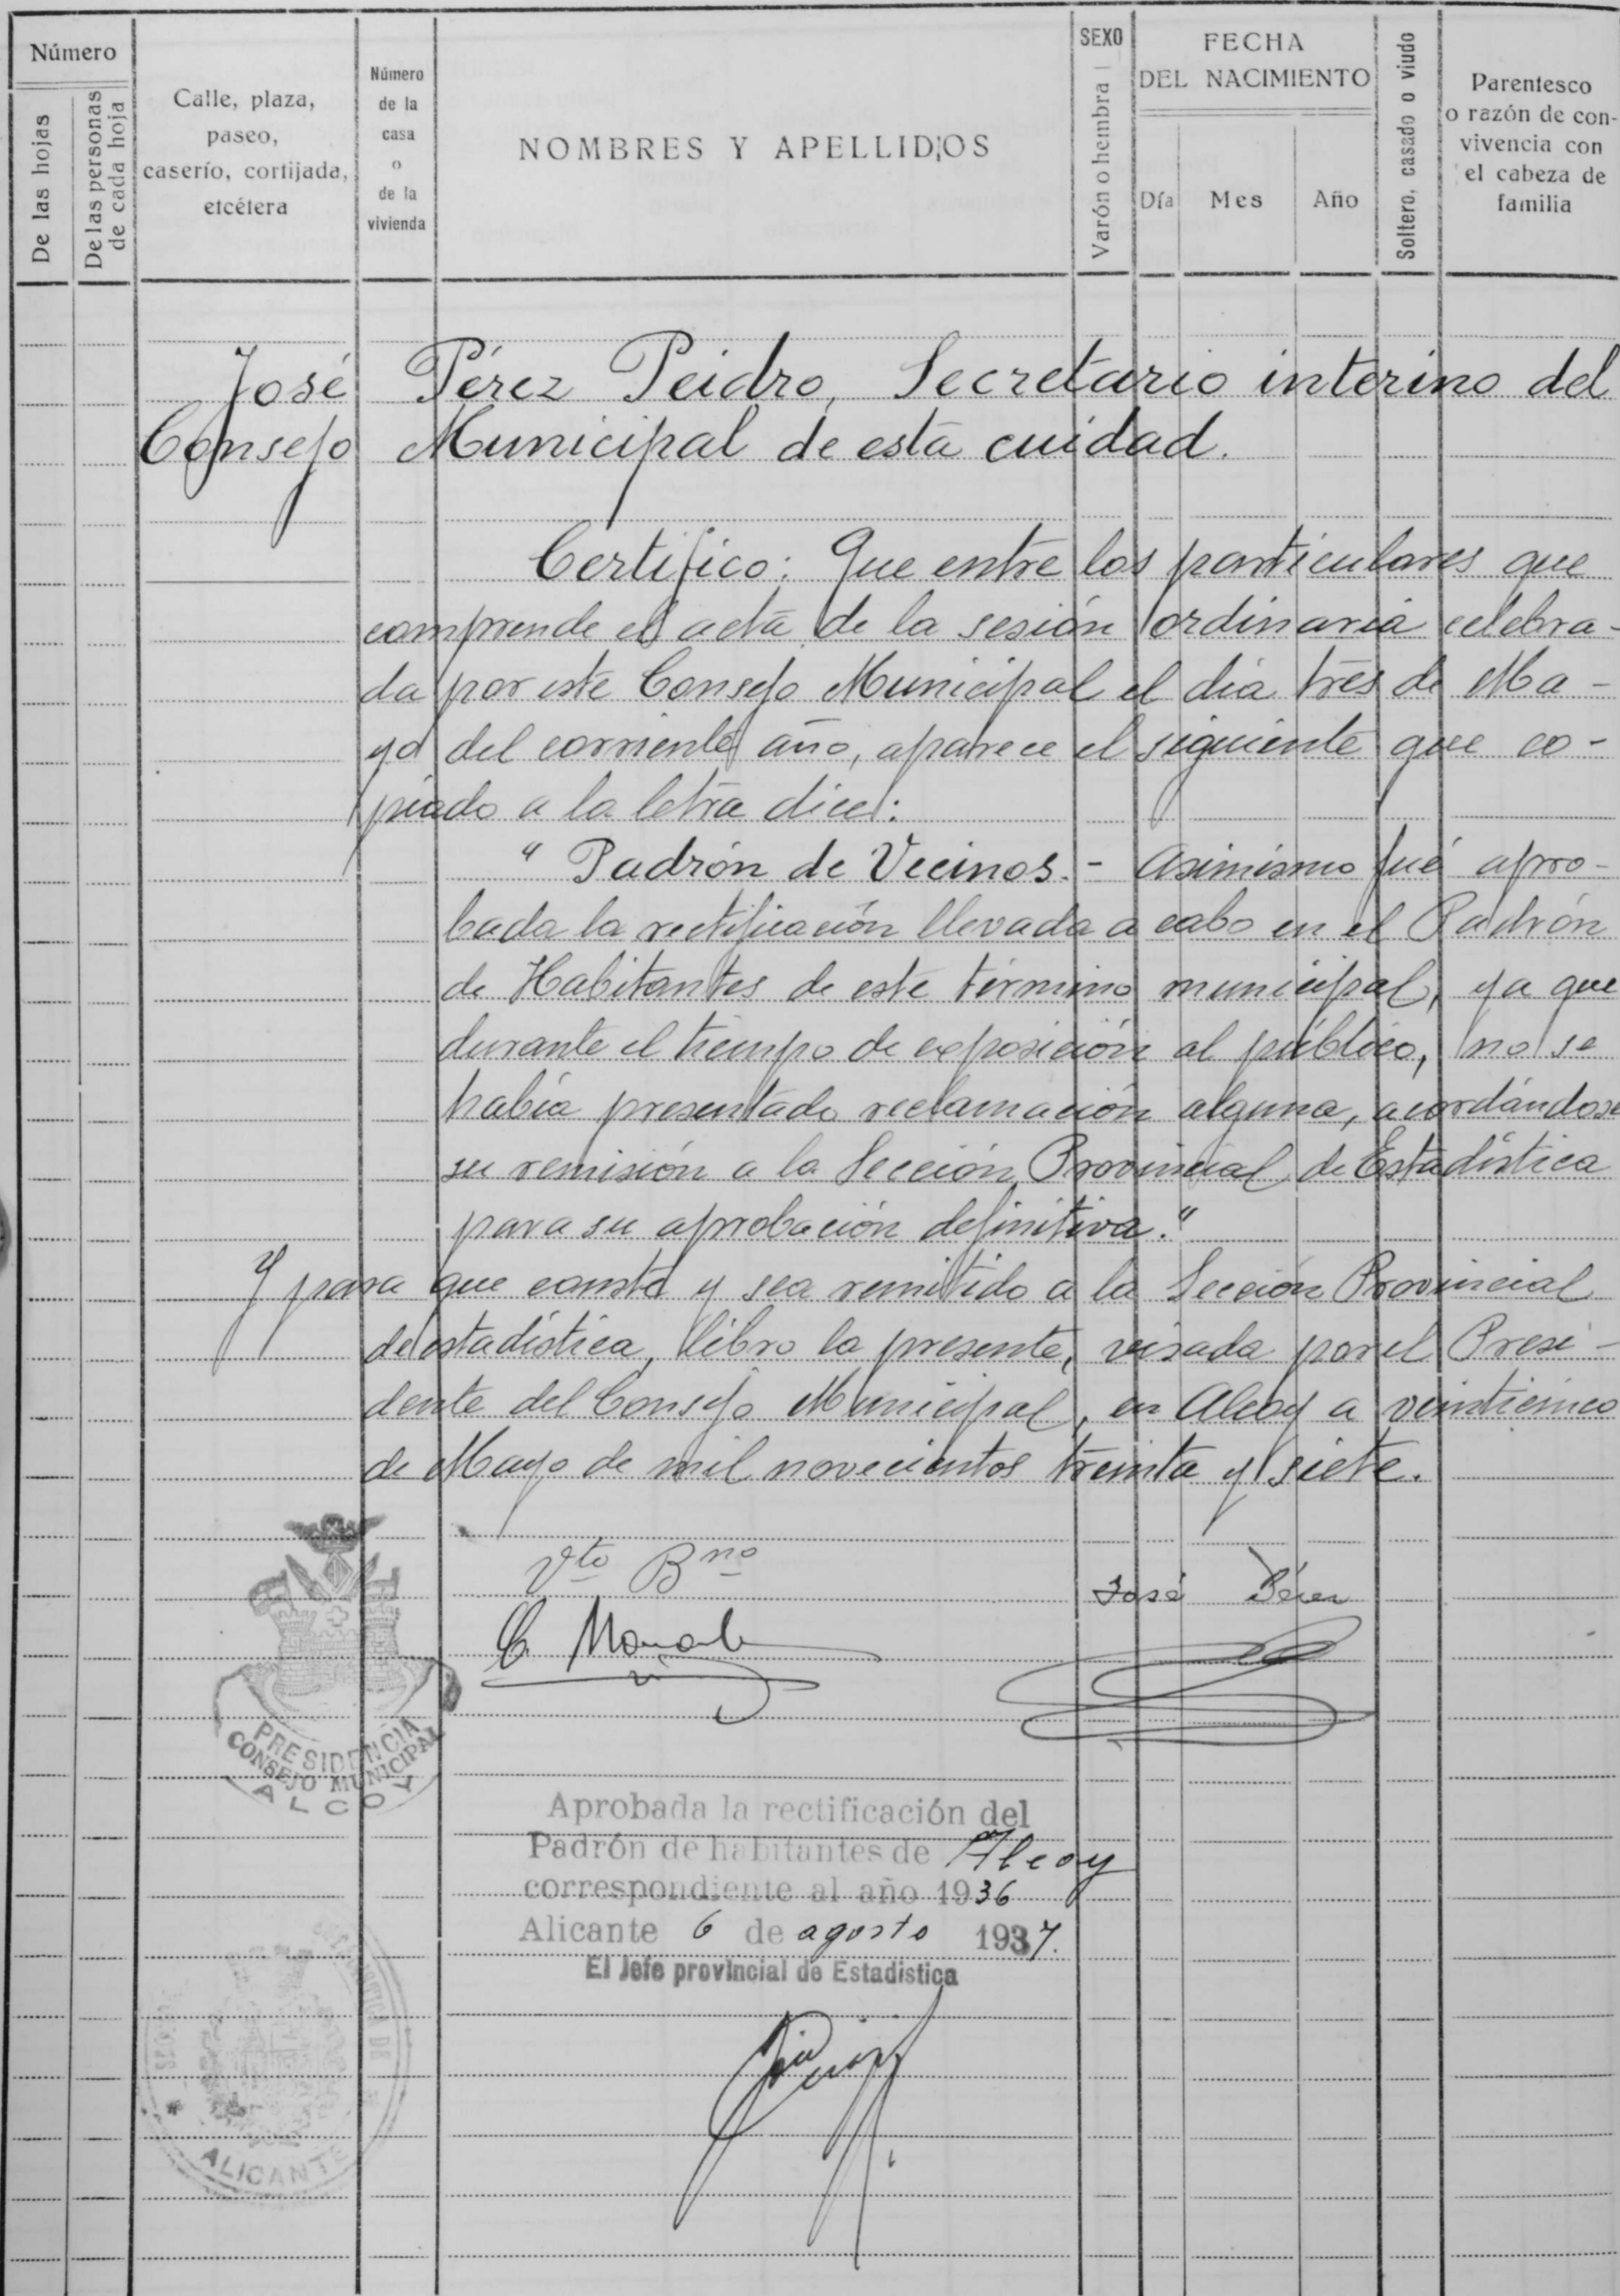 Número
De las hojas
De las personas de cada hoja
Calle, plaza,
paseo,
caserío, cortijada,
etcétera
Número
de la
casa
o
de la
vivienda
NOMBRES Y APELLIDOS
SEXO
Varón o hembra
FECHA
DEL NACIMIENTO
Día
Mes
Año
Soltero, casado o viudo
Parentesco
o razón de con-
vivencia con
el cabeza de
familia
José Pérez Peidro, Secretario interino del
Consejo Municipal de esta cuidad.
Certifico: Que entre los particulares que
comprende el acta de la sesión ordinaria celebra-
da por este Consejo Municipal el día tres de Ma-
yo del corriente año, aparece el siguiente que co-
piado a la letra dice:
" Padrón de Vecinos. - Asimismo fué apro-
bada la rectificación llevada a cabo en el Padrón
de Habitantes de este término municipal, ya que
durante el tiempo de exposición al público, no se
había presentado reclamación alguna, acordándose
su remisión a la Sección Provincial de Estadística
para su aprobación definitiva."
Y para que conste y sea remitido a la Sección Provincial
de estadística, libro la presente, visada por el Presi-
dente del Consejo Municipal, en Alcoy a veinticinco
de Mayo de mil novecientos treinta y siete.
Vto Bno
José Pérez
PRESIDENCIA
CONSEJO MUNICIPAL
ALCOY
Aprobada la rectificación del
Padrón de habitantes de Alcoy
correspondiente al año 1936
Alicante 6 de agosto 1937.
El Jefe provincial de Estadistica
ALICANTE